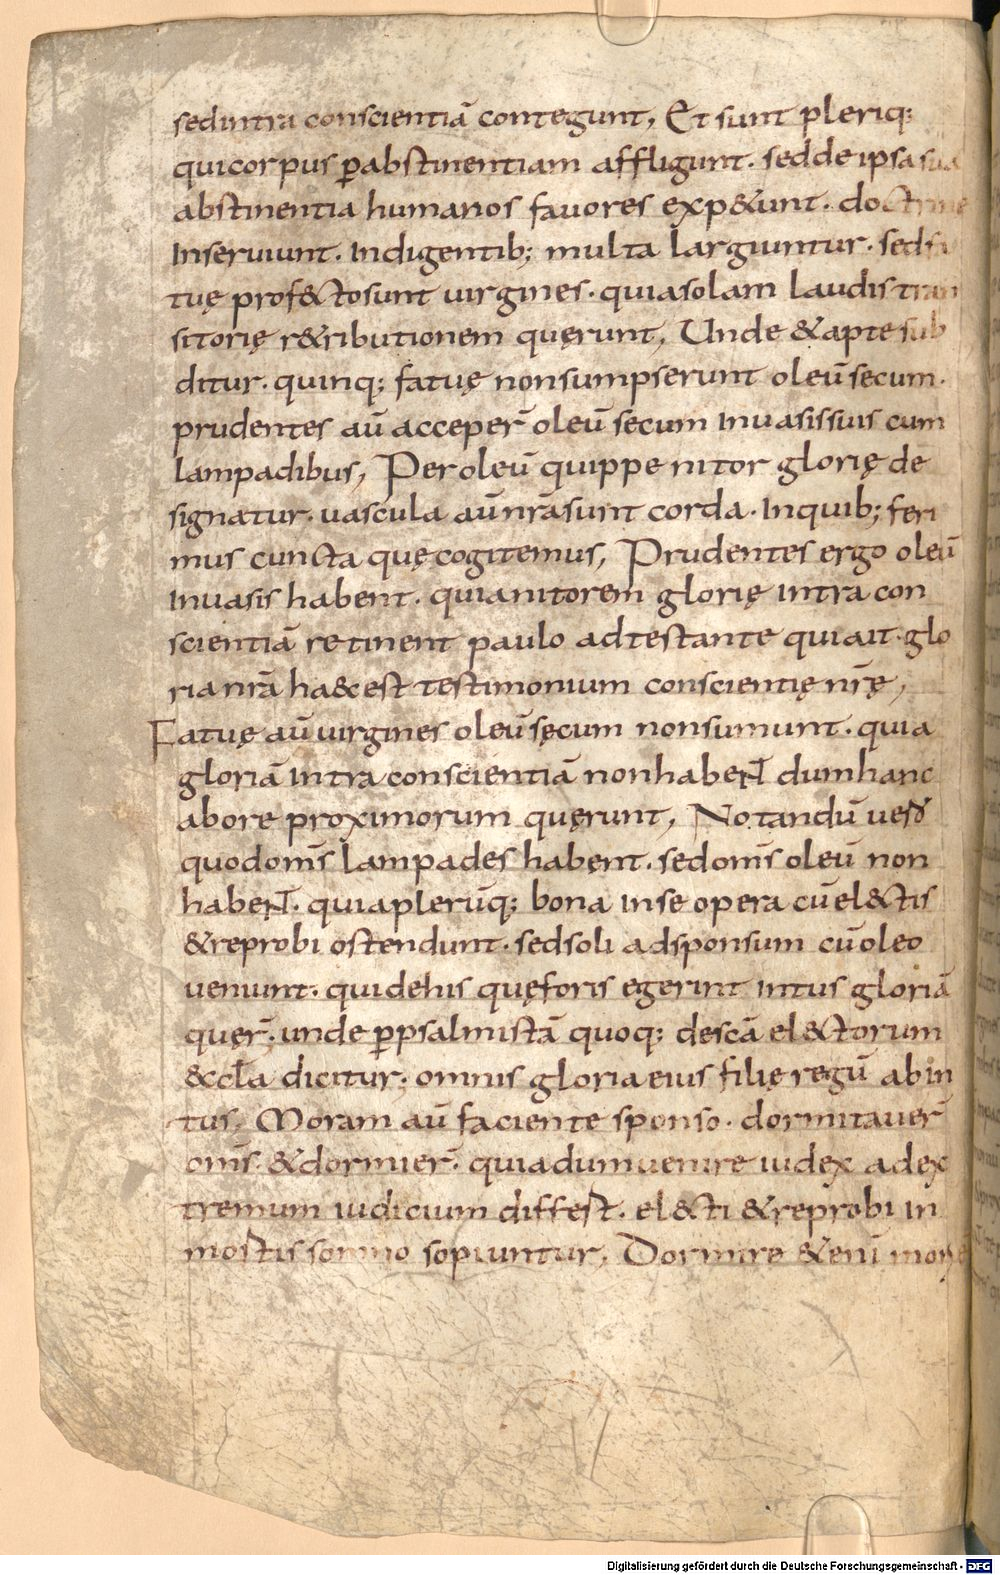 sedintra conscientiā contegunt, Et sunt pleriq;
quicorpus ꝑabstinentiam affligunt. sedde ipsa sua
abstinentia humanos fauores exp&unt. doctrine
Inseruiunt. Indigentib; multa largiuntur. sedfa
tuę prof&tosunt uirgines. quiasolam laudis tran
sitorię r&ributionem quęrunt, Unde &apte sub
ditur. quinq; fatuę nonsumpserunt oleū secum.
prudentes aū acceper̄ oleū secum Inuasissuis cum
lampadibus, Per oleū quippe nitor glorię de
signatur. uascula aū nr̄a sunt corda. Inquib; feri
mus cuncta quę cogitemus, Prudentes ergo oleū
Inuasis habent. quianitorem glorię intra con
scientiā retinent paulo adtestante quiait. glo
ria nr̄a ha&c est testimonium conscientię nr̄ę,
Fatuę aū uirgines oleū sęcum nonsumunt. quia
gloriā Intra conscientiā nonhabent dumhanc
abore proximorum quęrunt, Notandū uero
quodom̄s lampades habent. sedom̄s oleū non
habent. quiaplerūq; bona Inse opera cū el&tis
&reprobi ostendunt. sedsoli adsponsum cū oleo
ueniunt. quidehis quęforis egerint Intus gloriā
quer̄. unde ꝑpsalmistā quoq; descā el&torum
&ccl̄a dicitur. omnis gloria eius filię regū abin
tus, Moram aū faciente sponso. dormitauer̄
om̄s &dormier̄. quiadumuenire iudex adex
tremum iudicium differt. el&ti &reprobi in
mortis somno sopiuntur, Dormire &eni mori ē
Digitalisierung gefördert durch die Deutsche Forschungsgemeinschaft - DFG